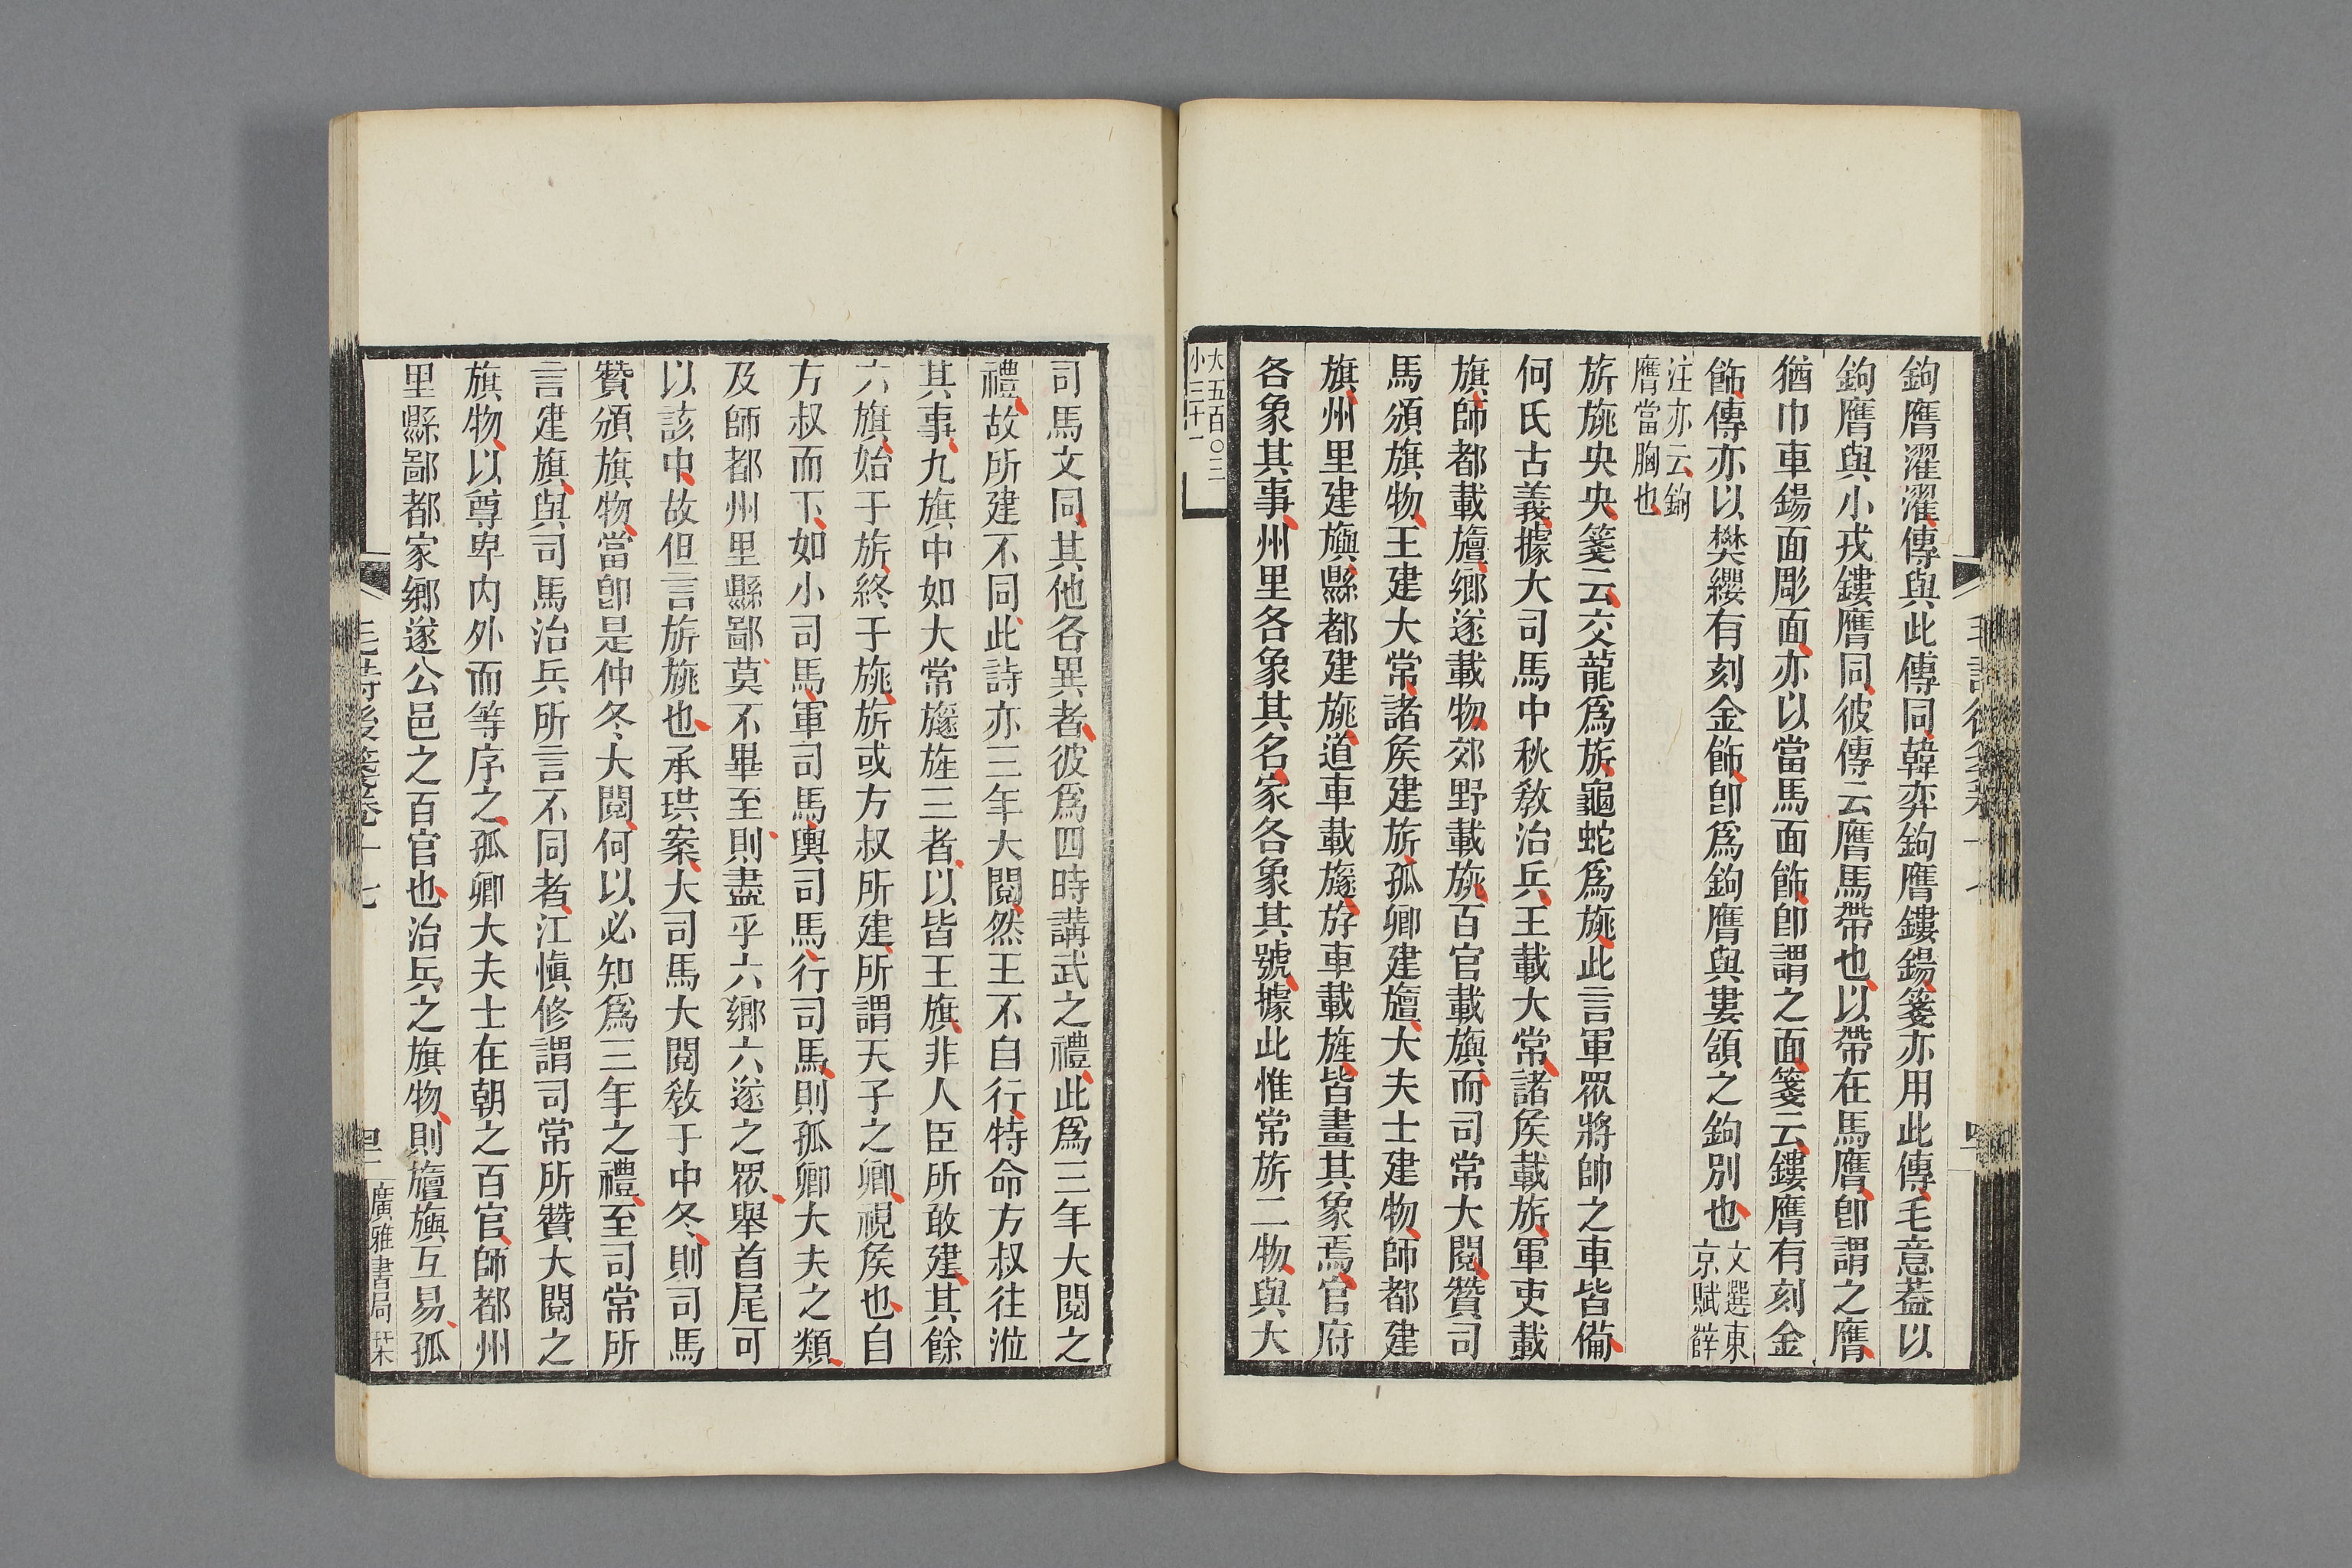 鉤膺濯濯傳與此傳同韓奕鉤膺鏤鍚箋亦用此傳毛意蓋以
鉤膺與小戎鏤膺同彼傳云膺馬帶也以帶在馬膺卽謂之膺
猶巾車鍚面彫面亦以當馬面飾卽謂之面箋云鏤膺有刻金
飾傳亦以樊纓有刻金飾卽爲鉤膺與婁頷之鉤別也文選東京賦薛
注亦云鉤膺當胸也
旂旐央央箋云交龍爲旂龜蛇爲旐此言軍眾將帥之車皆備
何氏古義據大司馬中秋敎治兵王載大常諸矦載旂軍吏載
旗師都載旜鄉遂載物郊野載旐百官載旟而司常大閱贊司
馬頒旗物王建大常諸矦建旂孤卿建旜大夫士建物師都建
旗州里建旟縣都建旐道車載旞斿車載旌皆畫其象焉官府
各象其事州里各象其名家各象其號據此惟常旂二物與大
大五百〇三
小三十一
司馬文同其他各異者彼爲四時講武之禮此爲三年大閱之
禮故所建不同此詩亦三年大閱然王不自行特命方叔往涖
其事九旗中如大常旞旌三者以皆王旗非人臣所敢建其餘
六旗始于旂終于旐旂或方叔所建所謂天子之卿視矦也自
方叔而下如小司馬軍司馬輿司馬行司馬則孤卿大夫之類
及師都州里縣鄙莫不畢至則盡乎六鄉六遂之眾舉首尾可
以該中故但言旂旐也承珙案大司馬大閱敎于中冬則司馬
贊頒旗物當卽是仲冬大閱何以必知爲三年之禮至司常所
言建旗與司馬治兵所言不同者江愼修謂司常所贊大閱之
旗物以尊卑內外而等序之孤卿大夫士在朝之百官師都州
里縣鄙都家鄉遂公邑之百官也治兵之旗物則旜旟互易孤
毛詩後箋卷十七
廣雅書局栞